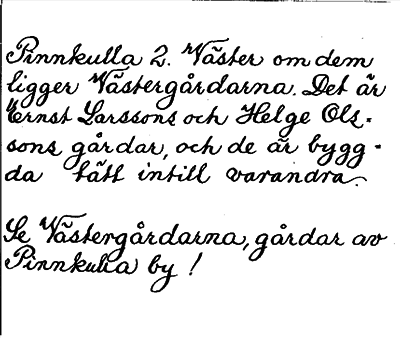 Pinnkulla 2. Väster om dem
ligger Västergårdarna. Det är
Ernst Larssons och Helge Ols-
sons gårdar, och de är bygg-
da tätt intill varandra.
Se Västergårdarna, gårdar av
Pinnkulla by!